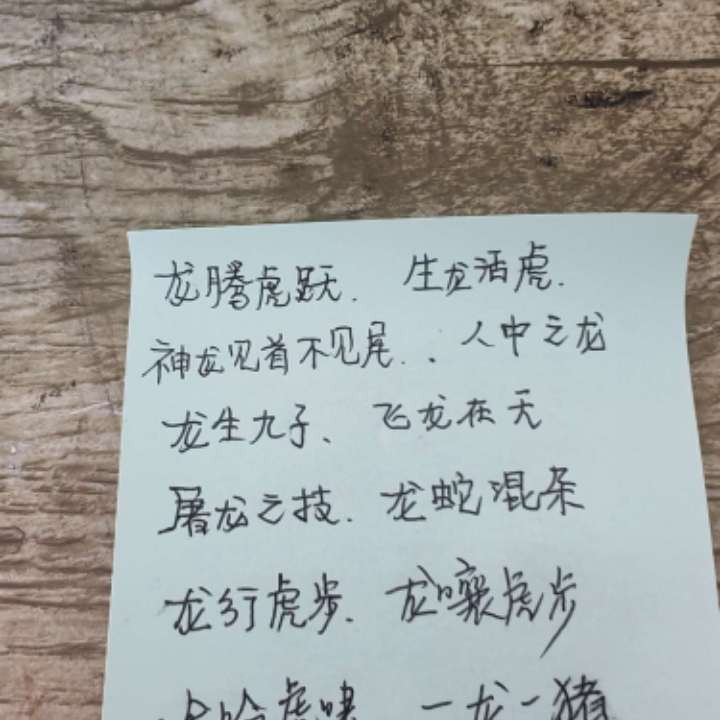 龙腾虎跃. 生龙活虎.
神龙见首不见尾.、人中之龙
龙生九子、飞龙在天
屠龙之技. 龙蛇混杂
龙行虎步. 龙嚷虎步
虎啸 一龙一猪